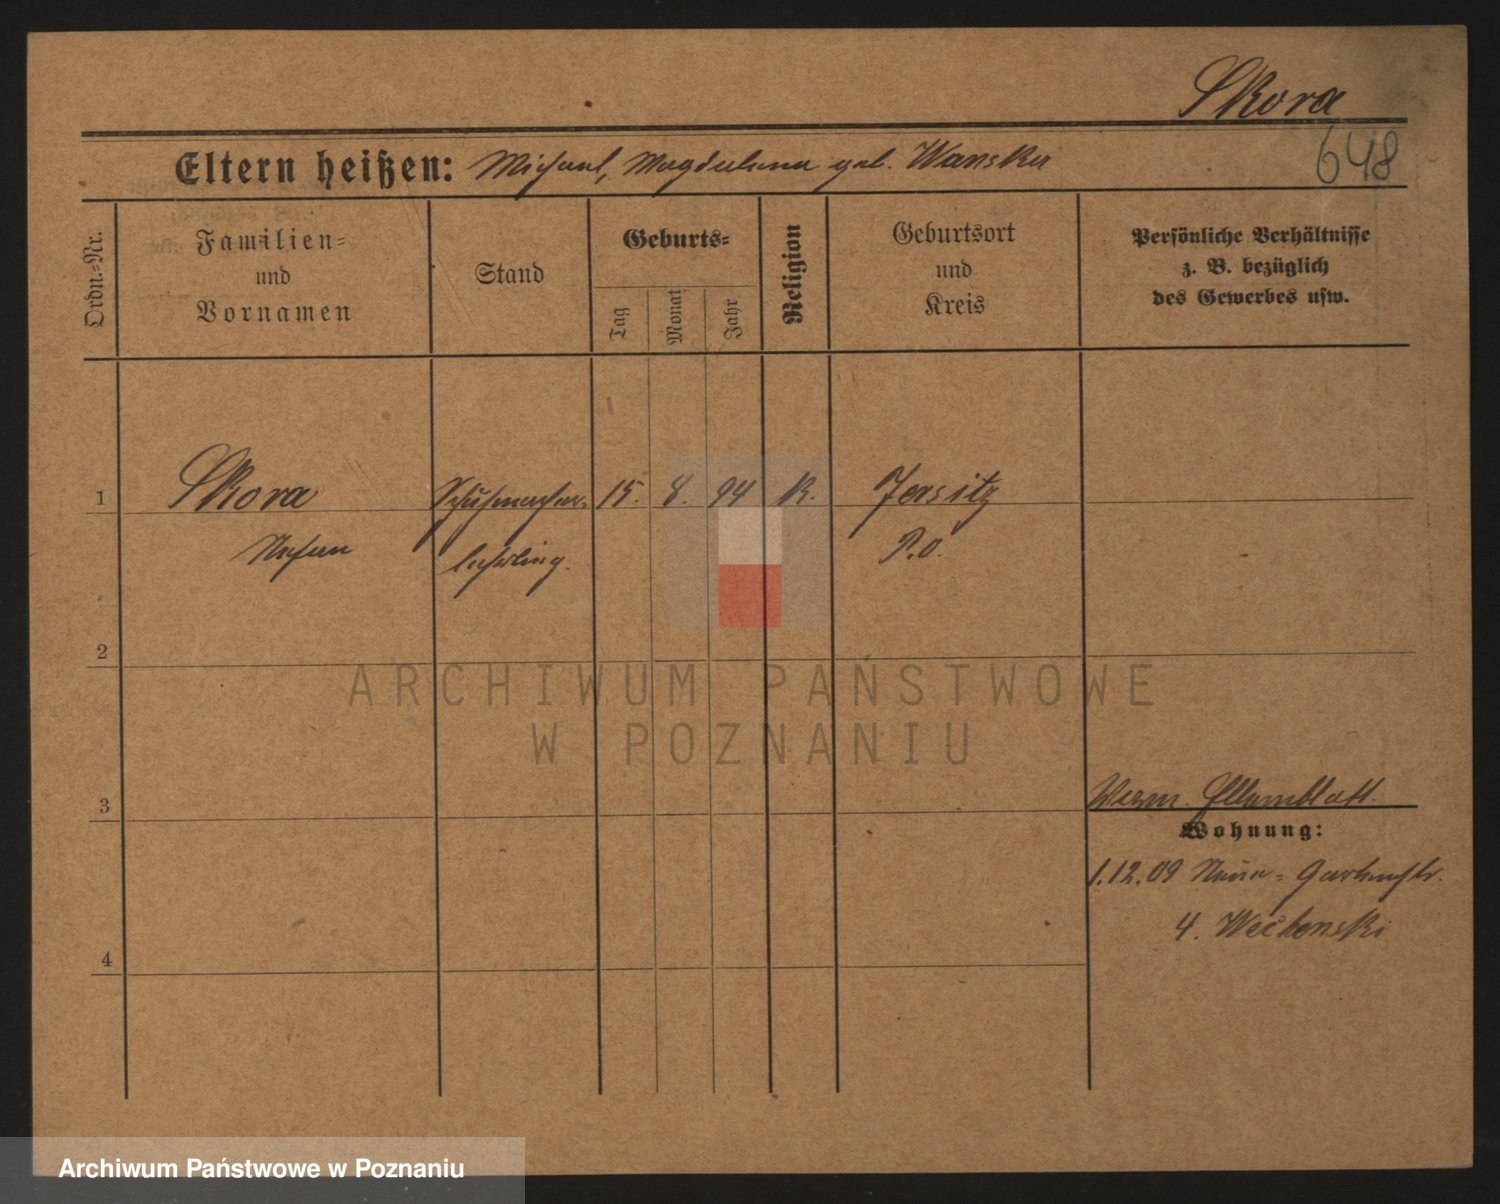 Skora
648
Eltern heißen: Michael, Magdalena geb. Wanska
Ordn.-Nr.
Familien-
und
Vornamen
Stand
Geburts-
Tag
Monat
Jahr
Religion
Geburtsort
und
Kreis
Persönliche Verhältnisse
z. B. bezüglich
des Gewerbes usw.
1
Skora
Schuhmacher-
15. 8. 94 K. Jersitz
lehrling.
P.O.
2
ARCHIWUM PAŃSTWOWE
W POZNANIU
3
Wohnung:
1.12.09 Neue-Gartenstr.
4.
4
Archiwum Państwowe w Poznaniu